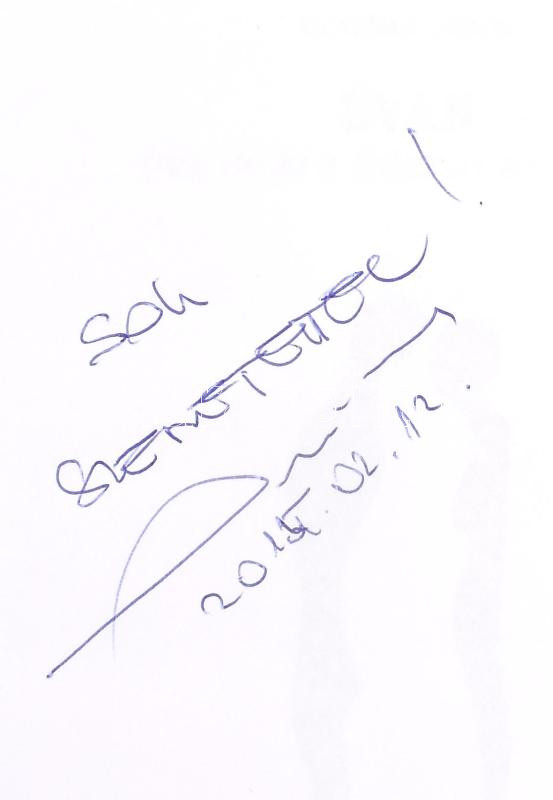 SOK
SZERETETTEL!
2015.02.12.